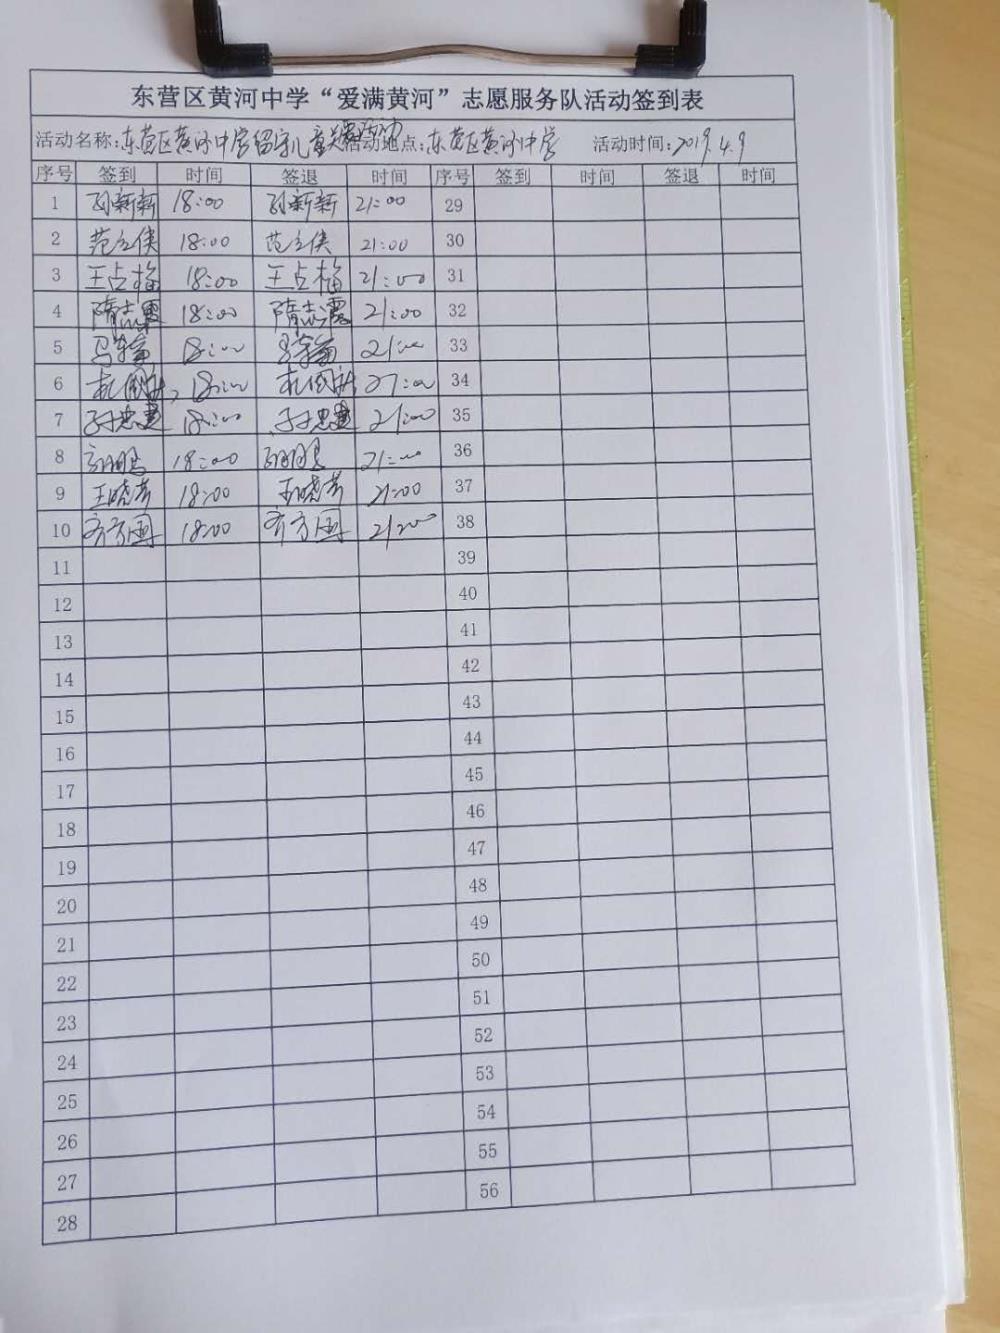 东营区黄河中学“爱满黄河”志愿服务队活动签到表
活动名称:东营区黄河中学留守儿童关爱活动 活动地点:东营区黄河中学 活动时间:2019.4.9
序号 签到 时间 签退 时间 序号 签到 时间 签退 时间
1 孙新新 18:00 孙新新 21:00 29
2 范立侠 18:00 范立侠 21:00 30
3 王占梅 18:00 王占梅 21:00 31
4 隋志霞 18:00 隋志霞 21:00 32
5 18:00 21:00 33
6 18:00 21:00 34
7 孙忠建 18:00 孙忠建 21:00 35
8 18:00 21:00 36
9 王晓芳 18:00 王晓芳 21:00 37
10 齐方国 18:00 齐方国 21:00 38
11 39
12 40
13 41
14 42
15 43
16 44
17 45
18 46
19 47
20 48
21 49
22 50
23 51
24 52
25 53
26 54
27 55
28 56